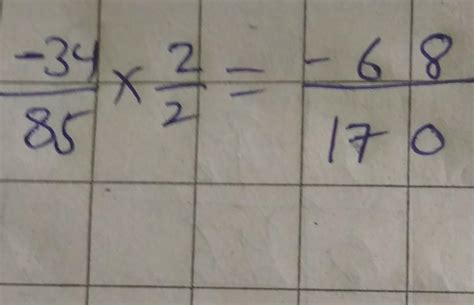 -34/85 × 2/2 = -68/170